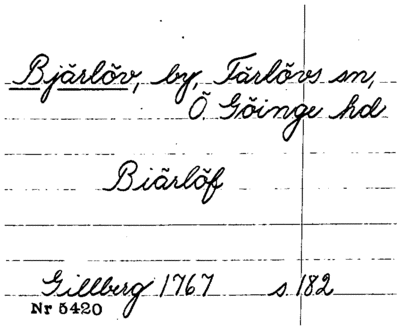 Bjärlöv, by, Färlövs sn,
Ö Göinge hd
Biärlöf
Gillberg 1767 s 182
Nr 5420